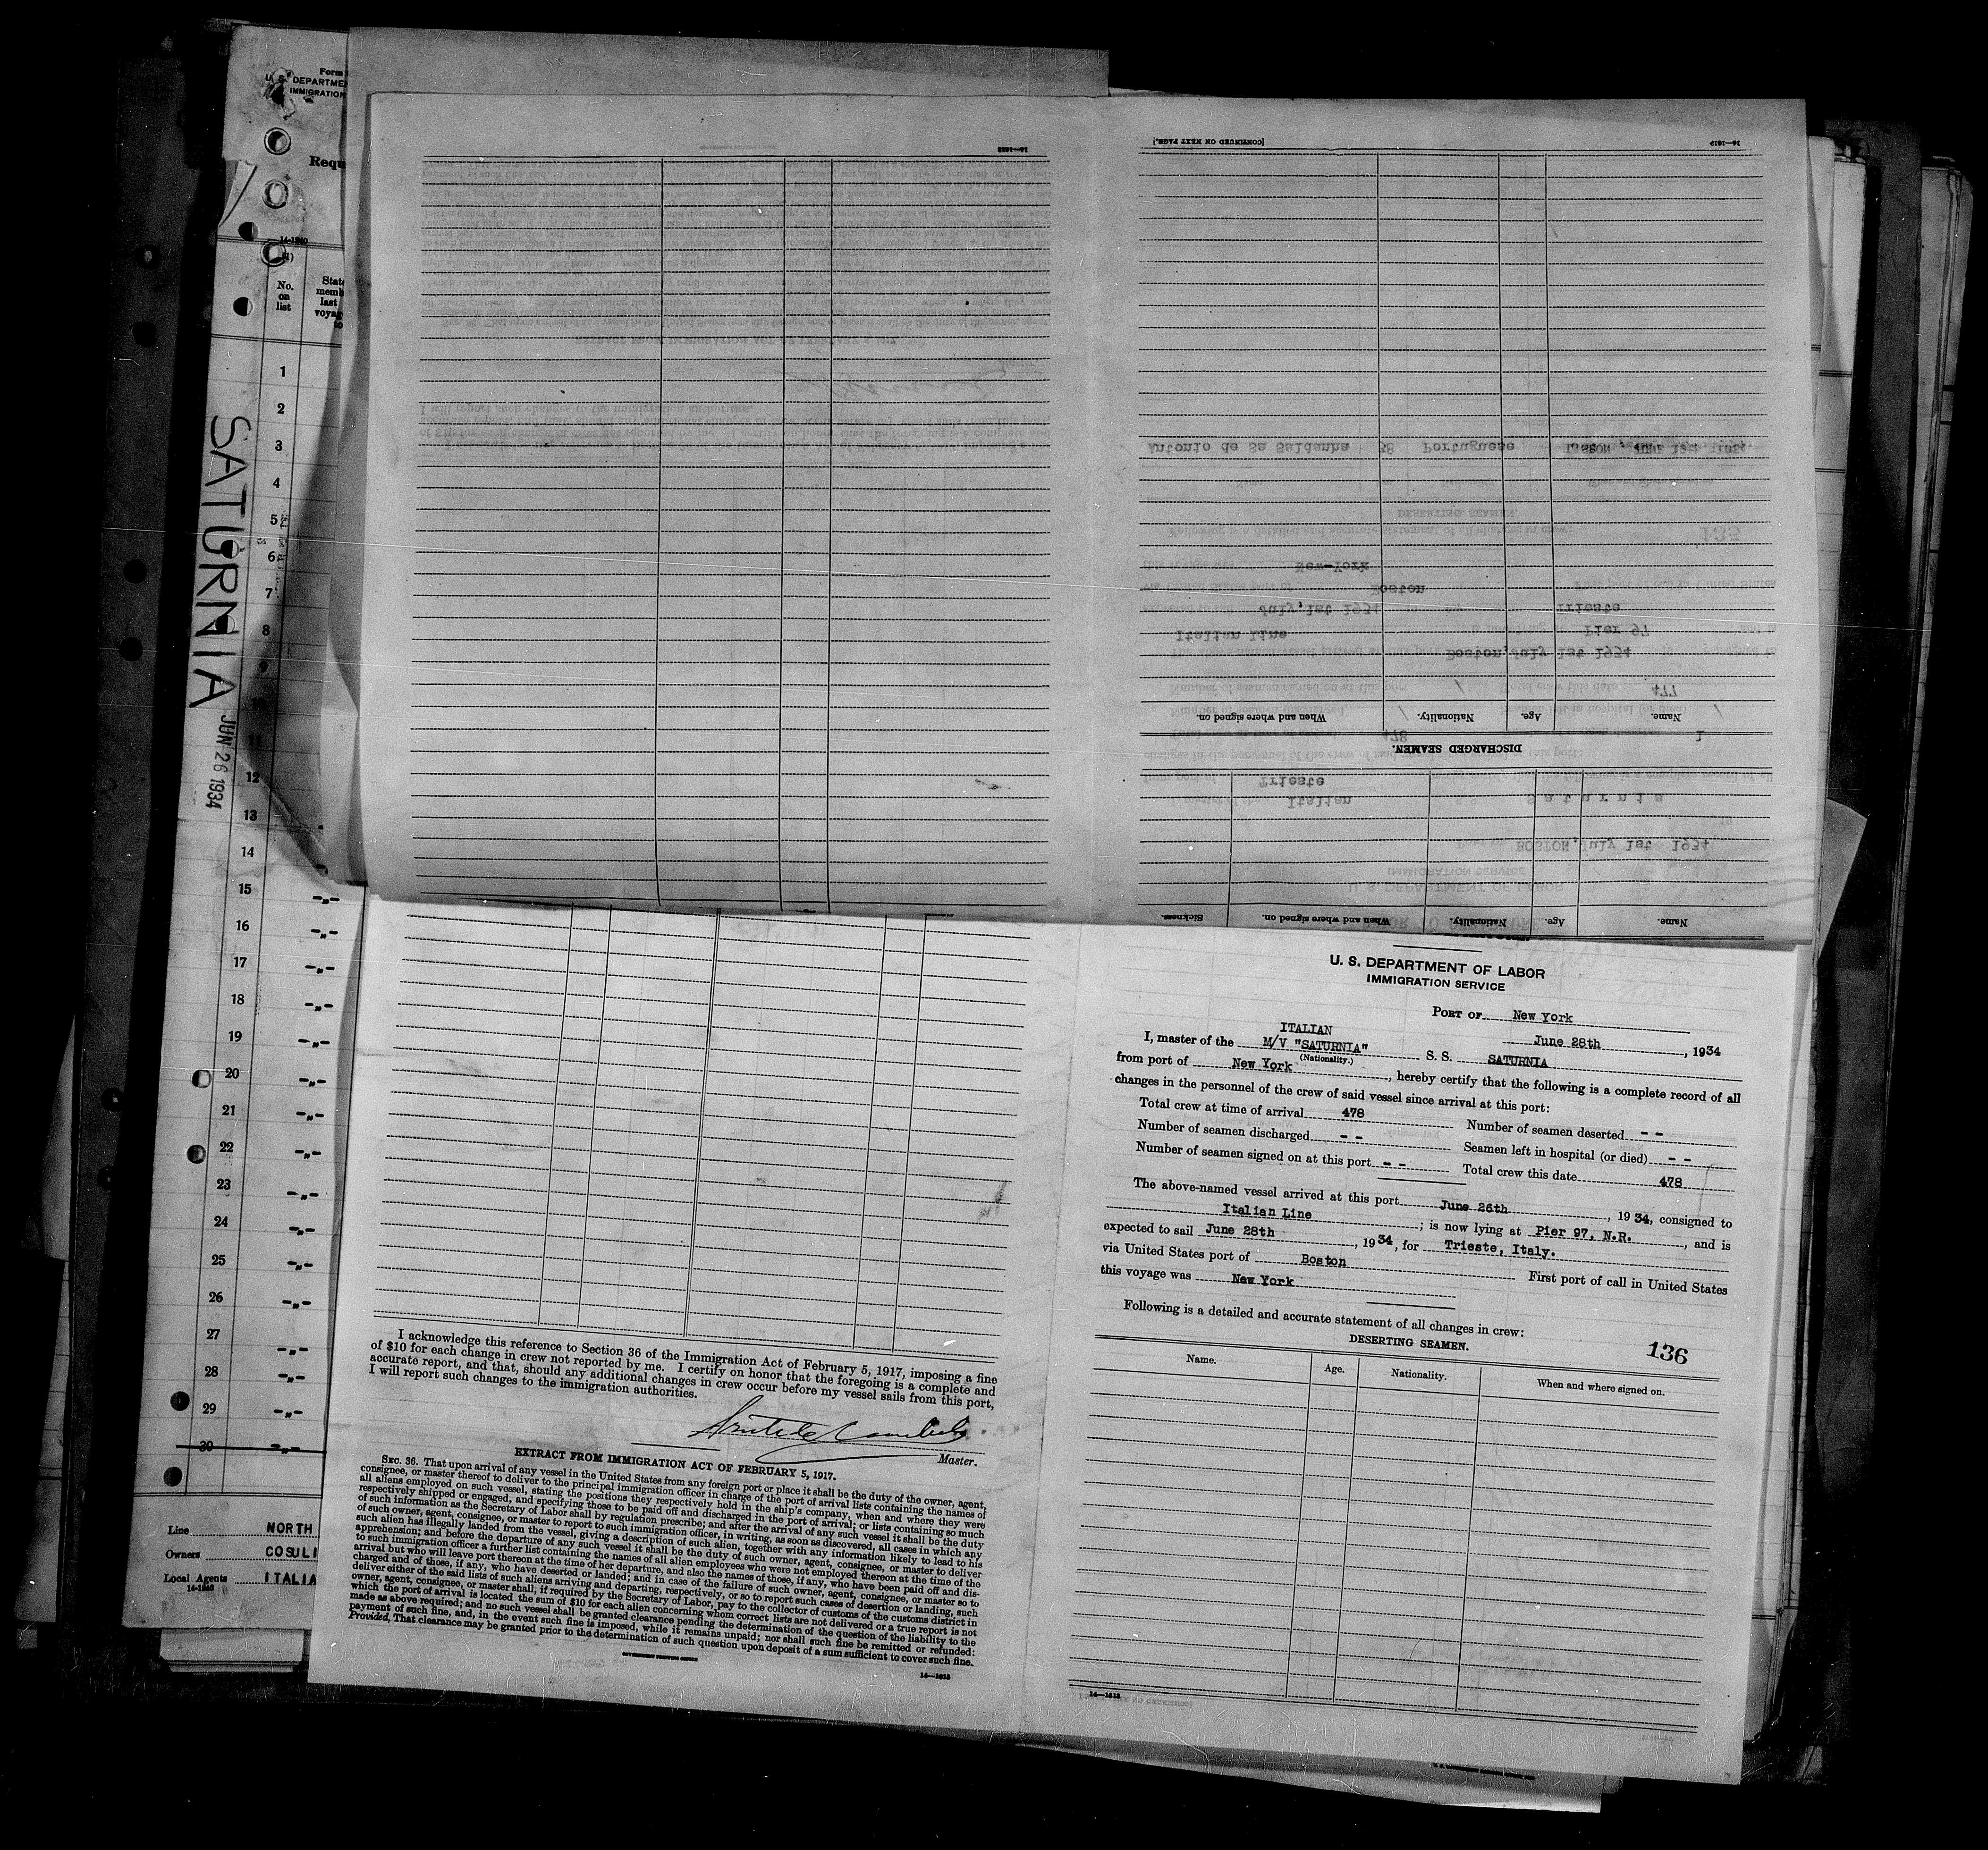 Form
U. S. DEPARTMEN
IMMIGRATION
Requ
14-1240
No.
on
list
State
memb
last
voyag
to
1
2
3
4
5
6
7
8
9
10
11
12
13
14
15 -„-
16 -„-
17 -„-
18 -„-
19 -„-
20 -„-
21 -„-
22 -„-
23 -„-
24 -„-
25 -„-
26 -„-
27 -„-
28 -„-
29 -„-
30 -„-
SATURNIA
JUN 26 1934
Line NORTH
Owners COSULI
Local Agents ITALIA
14-1240
[CONTINUED ON NEXT PAGE.]
Antonio de Sa Saldanha 38 Portuguese LISBON, JUNE
DESERTING SEAMEN.
Following is a detailed and accurate statement of all changes in crew:
135
New-York
Boston
July, 1st 1934 Trieste
Italian Line Pier 97
Boston, July 1st 1934
Number of seamen signed on at this port / Total crew this date 477
478 1
Name. Age. Nationality. When and where signed on.
DISCHARGED SEAMEN.
Trieste
Italian Saturnia
BOSTON, July 1st 1934
IMMIGRATION SERVICE
U. S. DEPARTMENT OF LABOR
Name. Age. Nationality. When and where signed on. Sickness.
U. S. DEPARTMENT OF LABOR
IMMIGRATION SERVICE
PORT OF New York
June 28th, 1934
ITALIAN
I, master of the M/V "SATURNIA" S. S. SATURNIA
(Nationality.)
from port of New York, hereby certify that the following is a complete record of all
changes in the personnel of the crew of said vessel since arrival at this port:
Total crew at time of arrival 478 Number of seamen deserted - -
Number of seamen discharged - - Seamen left in hospital (or died) - -
Number of seamen signed on at this port - - Total crew this date 478
The above-named vessel arrived at this port June 26th, 1934, consigned to
Italian Line; is now lying at Pier 97, N.R., and is
expected to sail June 28th, 1934, for Trieste, Italy.
via United States port of Boston First port of call in United States
this voyage was New York
Following is a detailed and accurate statement of all changes in crew:
DESERTING SEAMEN.
136
Name. Age. Nationality. When and where signed on.
14—1618
I acknowledge this reference to Section 36 of the Immigration Act of February 5, 1917, imposing a fine
of $10 for each change in crew not reported by me. I certify on honor that the foregoing is a complete and
accurate report, and that, should any additional changes in crew occur before my vessel sails from this port,
I will report such changes to the immigration authorities.
Master.
EXTRACT FROM IMMIGRATION ACT OF FEBRUARY 5, 1917.
SEC. 36. That upon arrival of any vessel in the United States from any foreign port or place it shall be the duty of the owner, agent,
consignee, or master thereof to deliver to the principal immigration officer in charge of the port of arrival lists containing the names of
all aliens employed on such vessel, stating the positions they respectively hold in the ship's company, when and where they were
respectively shipped or engaged, and specifying those to be paid off and discharged in the port of arrival; or lists containing so much
of such information as the Secretary of Labor shall by regulation prescribe; and after the arrival of any such vessel it shall be the duty
of such owner, agent, consignee, or master to report to such immigration officer, in writing, as soon as discovered, all cases in which any
such alien has illegally landed from the vessel, giving a description of such alien, together with any information likely to lead to his
apprehension; and before the departure of any such vessel it shall be the duty of such owner, agent, consignee, or master to deliver
to such immigration officer a further list containing the names of all alien employees who were not employed thereon at the time of the
arrival but who will leave port thereon at the time of her departure, and also the names of those, if any, who have been paid off and dis-
charged and of those, if any, who have deserted or landed; and in case of the failure of such owner, agent, consignee, or master so to
deliver either of the said lists of such aliens arriving and departing, respectively, or so to report such cases of desertion or landing, such
owner, agent, consignee, or master shall, if required by the Secretary of Labor, pay to the collector of customs of the customs district in
which the port of arrival is located the sum of $10 for each alien concerning whom correct lists are not delivered or a true report is not
made as above required; and no such vessel shall be granted clearance pending the determination of the question of the liability to the
payment of such fine, and, in the event such fine is imposed, while it remains unpaid; nor shall such fine be remitted or refunded:
Provided, That clearance may be granted prior to the determination of such question upon deposit of a sum sufficient to cover such fine.
GOVERNMENT PRINTING OFFICE
14—1618